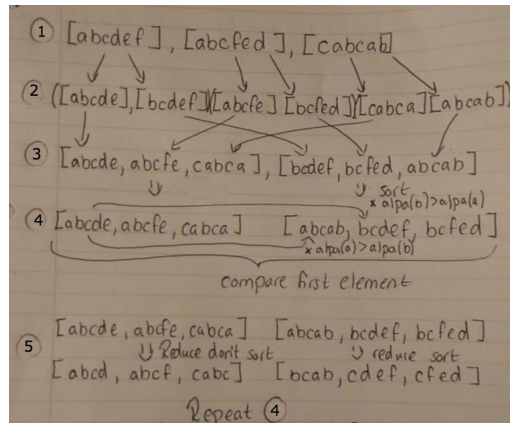 ① [abcdef], [abcfed], [cabcab]
② ([abcde],[bcdef])([abcfe] [bcfed])([cabca][abcab])
③ [abcde, abcfe, cabca], [bcdef, bcfed, abcab]
sort
x alpa(b)>alpa(a)
④ [abcde, abcfe, cabca] [abcab, bcdef, bcfed]
x alpa(a)>alpa(b)
compare first element
⑤ [abcde, abcfe, cabca] [abcab, bcdef, bcfed]
Reduce don't sort reduce sort
[abcd, abcf, cabc] [bcab, cdef, cfed]
Repeat ④